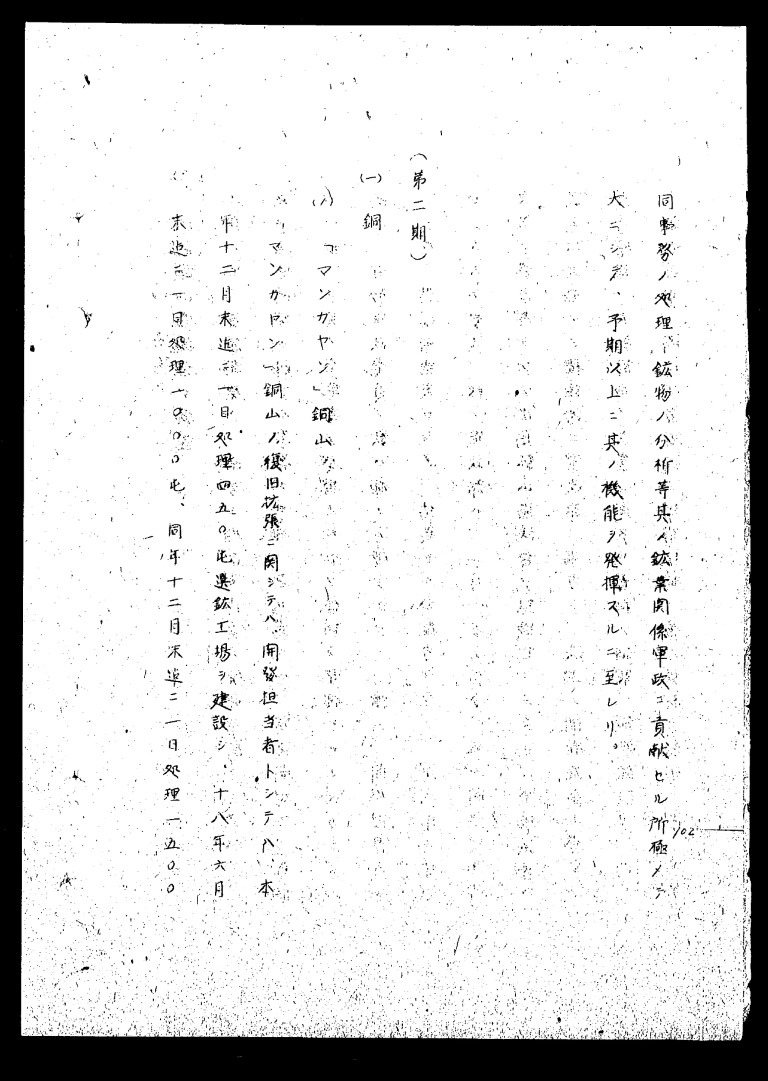 同事務ノ処理、鉱物ノ分析等其ノ鉱業関係軍政ニ貢献セル所極メテ
大ニシテ、予期以上ニ其ノ機能ヲ発揮スルニ至レリ。
(第二期)
(一) 銅
(1) 「マンカヤン」銅山
「マンカヤン」銅山ノ復旧拡張ニ関シテハ、開発担当者トシテハ、本
年十二月末迄ニ一日処理四五〇屯選鉱工場ヲ建設シ、十八年六月
末迄ニ一日処理一〇〇〇屯、同年十二月末迄ニ一日処理一五〇〇
102